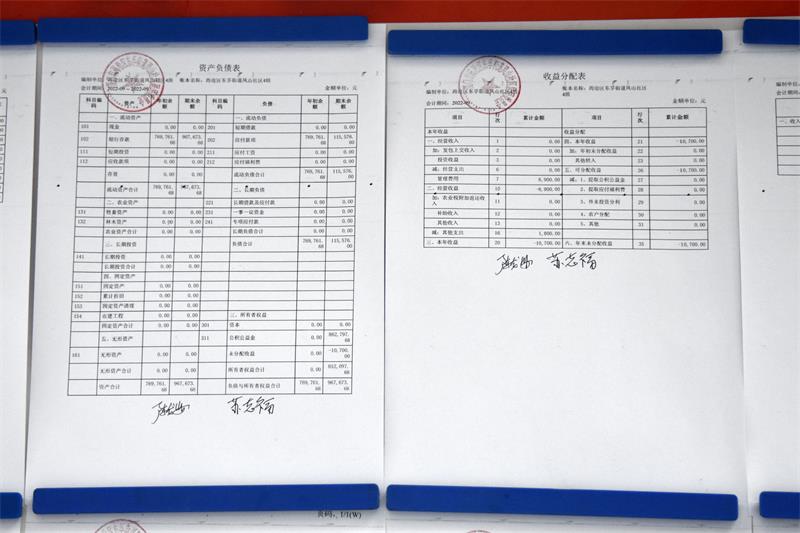 资产负债表
编制单位：海沧区东孚街道凤山社区4组 账本名称：海沧区东孚街道凤山社区4组
会计期间：2022-09--2022-09 金额单位：元
科目编码 资产 年初余额 期末余额 科目编码 负债 年初余额 期末余额
一、流动资产 一、流动负债
101 现金 0.00 0.00 201 短期借款 0.00 0.00
102 银行存款 769,761.68 967,673.68 202 应付款项 769,761.68 115,576.00
111 短期投资 0.00 0.00 211 应付工资 0.00 0.00
112 应收款项 0.00 0.00 212 应付福利费 0.00 0.00
存货 0.00 0.00 流动负债合计 769,761.68 115,576.00
流动资产合计 769,761.68 967,673.68 二、长期负债
二、农业资产 221 长期借款及应付款 0.00 0.00
131 牲畜资产 0.00 0.00 231 一事一议资金 0.00 0.00
132 林木资产 0.00 0.00 241 专项应付款 0.00 0.00
农业资产合计 0.00 0.00 长期负债合计 0.00 0.00
三、长期投资 负债合计 769,761.68 115,576.00
141 长期投资 0.00 0.00
长期投资合计 0.00 0.00
四、固定资产
151 固定资产 0.00 0.00
152 累计折旧 0.00 0.00
153 固定资产清理 0.00 0.00
154 在建工程 0.00 0.00 三、所有者权益
固定资产合计 0.00 0.00 301 资本 0.00 0.00
五、无形资产 311 公积公益金 0.00 862,797.68
161 无形资产 0.00 0.00 未分配收益 0.00 -10,700.00
无形资产合计 0.00 0.00 所有者权益合计 0.00 852,097.68
资产合计 769,761.68 967,673.68 负债与所有者权益合计 769,761.68 967,673.68
苏志福
页码：1/1(W)
收益分配表
编制单位：海沧区东孚街道凤山社区4组 账本名称：海沧区东孚街道凤山社区4组
会计期间：2022-09 金额单位：元
项目 行次 累计金额 项目 行次 累计金额
本年收益 收益分配
一、经营收入 1 0.00 四、本年收益 21 -10,700.00
加：发包上交收入 2 0.00 加：年初未分配收益 22 0.00
投资收益 3 0.00 其他转入 23 0.00
减：经营支出 6 0.00 五、可分配收益 26 -10,700.00
管理费用 7 8,900.00 减：1、提取公积公益金 27 0.00
二、经营收益 10 -8,900.00 2、提取应付福利费 28 0.00
加：农业税附加返还收入 11 0.00 3、外来投资分利 29 0.00
补助收入 12 0.00 4、农户分配 30 0.00
其他收入 13 0.00 5、其他 31 0.00
减：其他支出 16 1,800.00
三、本年收益 20 -10,700.00 六、年末未分配收益 35 -10,700.00
苏志福